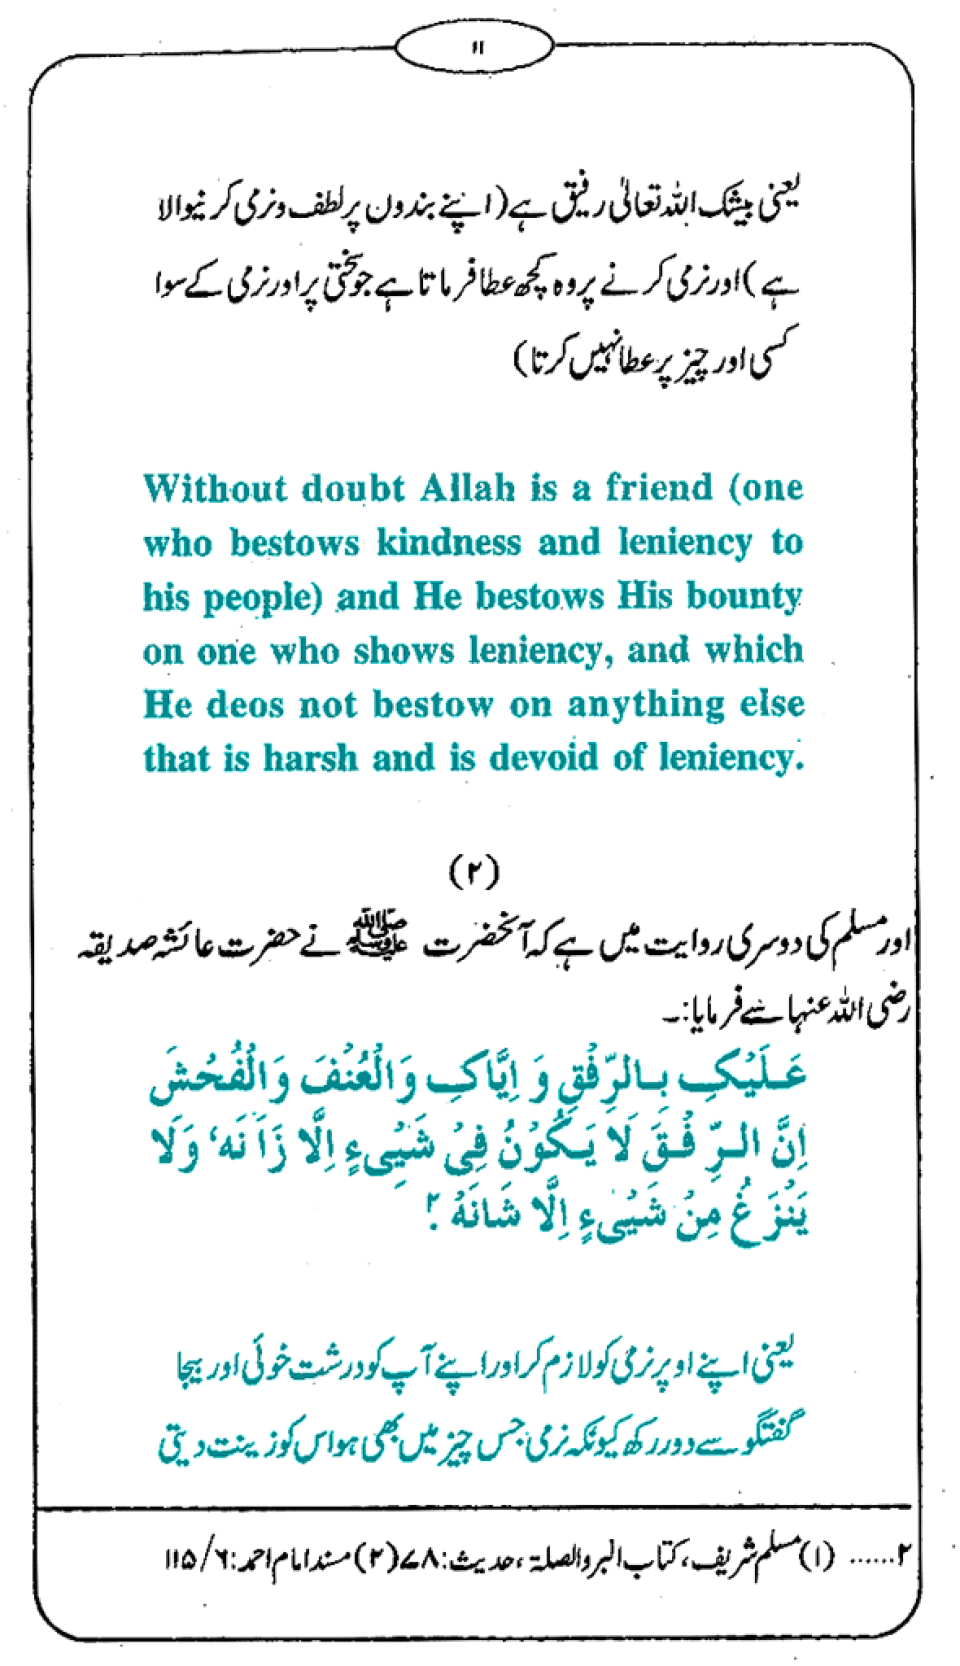 ۱۱
یعنی بیشک اللہ تعالیٰ رفیق ہے (اپنے بندون پر لطف و نرمی کرنیوالا
ہے) اور نرمی کرنے پر وہ کچھ عطا فرماتا ہے جو سختی پر اور نرمی کے سوا
کسی اور چیز پر عطا نہیں کرتا)
Without doubt Allah is a friend (one
who bestows kindness and leniency to
his people) and He bestows His bounty
on one who shows leniency, and which
He deos not bestow on anything else
that is harsh and is devoid of leniency.
(۲)
اور مسلم کی دوسری روایت میں ہے کہ آنحضرت ﷺ نے حضرت عائشہ صدیقہ
رضی اللہ عنہا سے فرمایا:۔
عَلَیْکِ بِالرِّفْقِ وَ اِیَّاکِ وَالْعُنْفَ وَالْفُحْشَ
اِنَّ الرِّ فْقَ لَا یَکُوْنُ فِیْ شَیْیٍٔ اِلَّا زَانَه‘ وَلَا
یَنْزَغُ مِنْ شَیْیٍٔ اِلَّا شَانَهُ ۲؎
یعنی اپنے اوپر نرمی کو لازم کر اور اپنے آپ کو درشت خوئی اور بیجا
گفتگو سے دور رکھ کیونکہ نرمی جس چیز میں بھی ہو اس کو زینت دیتی
۲...... (۱) مسلم شریف، کتاب البر والصلۃ، حدیث: ۷۸ (۲) مسند امام احمد: ۶/۱۱۵